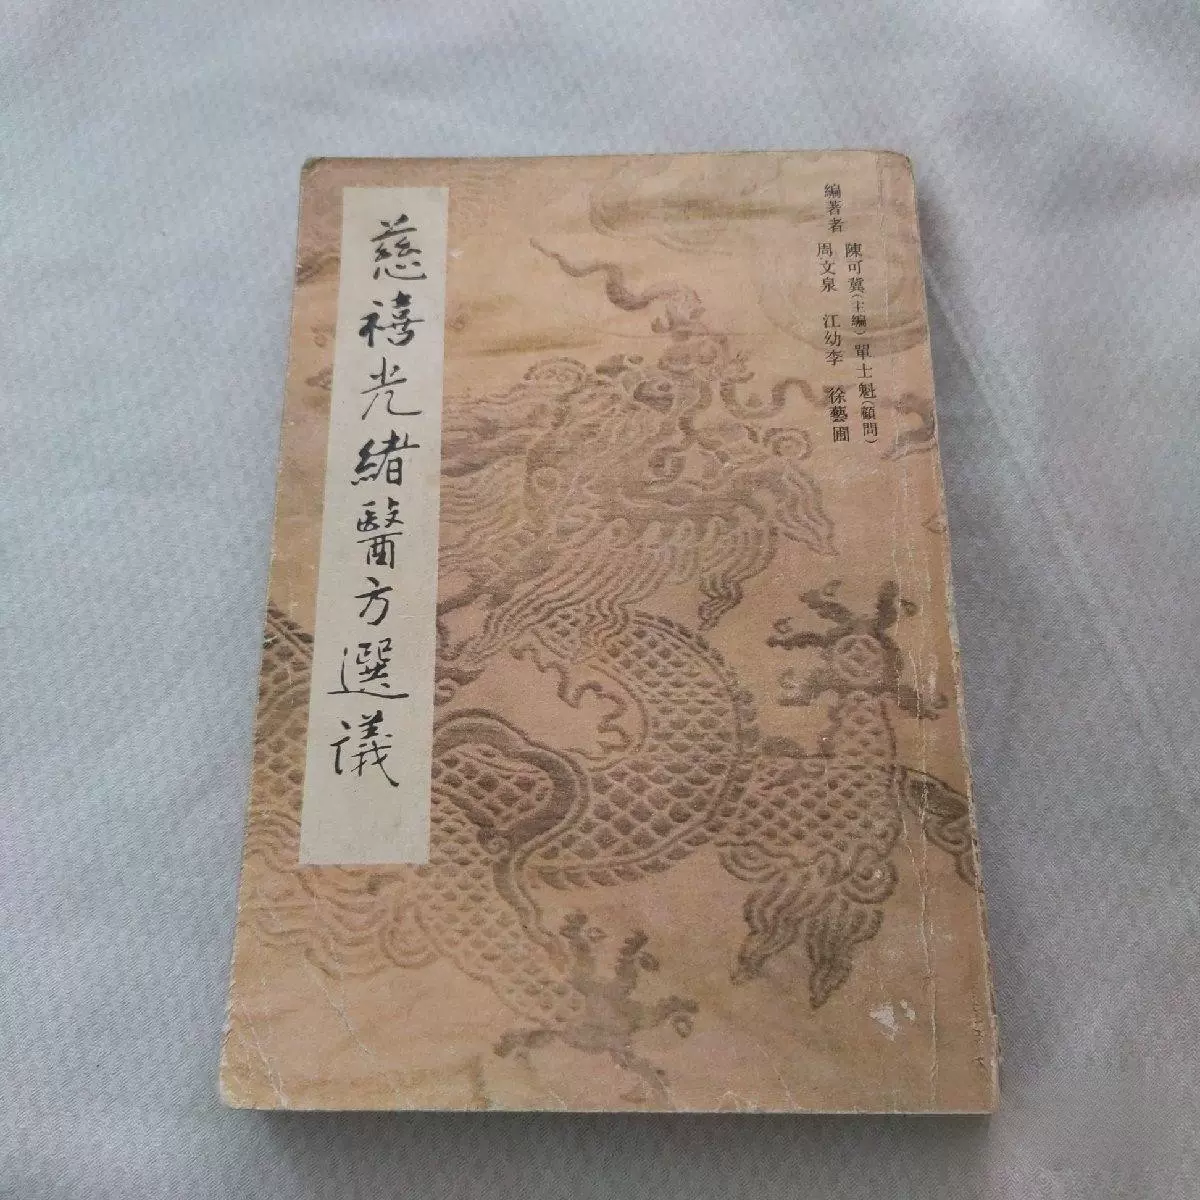 編著者
陳可冀(主編) 單士魁(顧問)
周文泉 江幼李 徐藝圃
慈禧光緒醫方選議